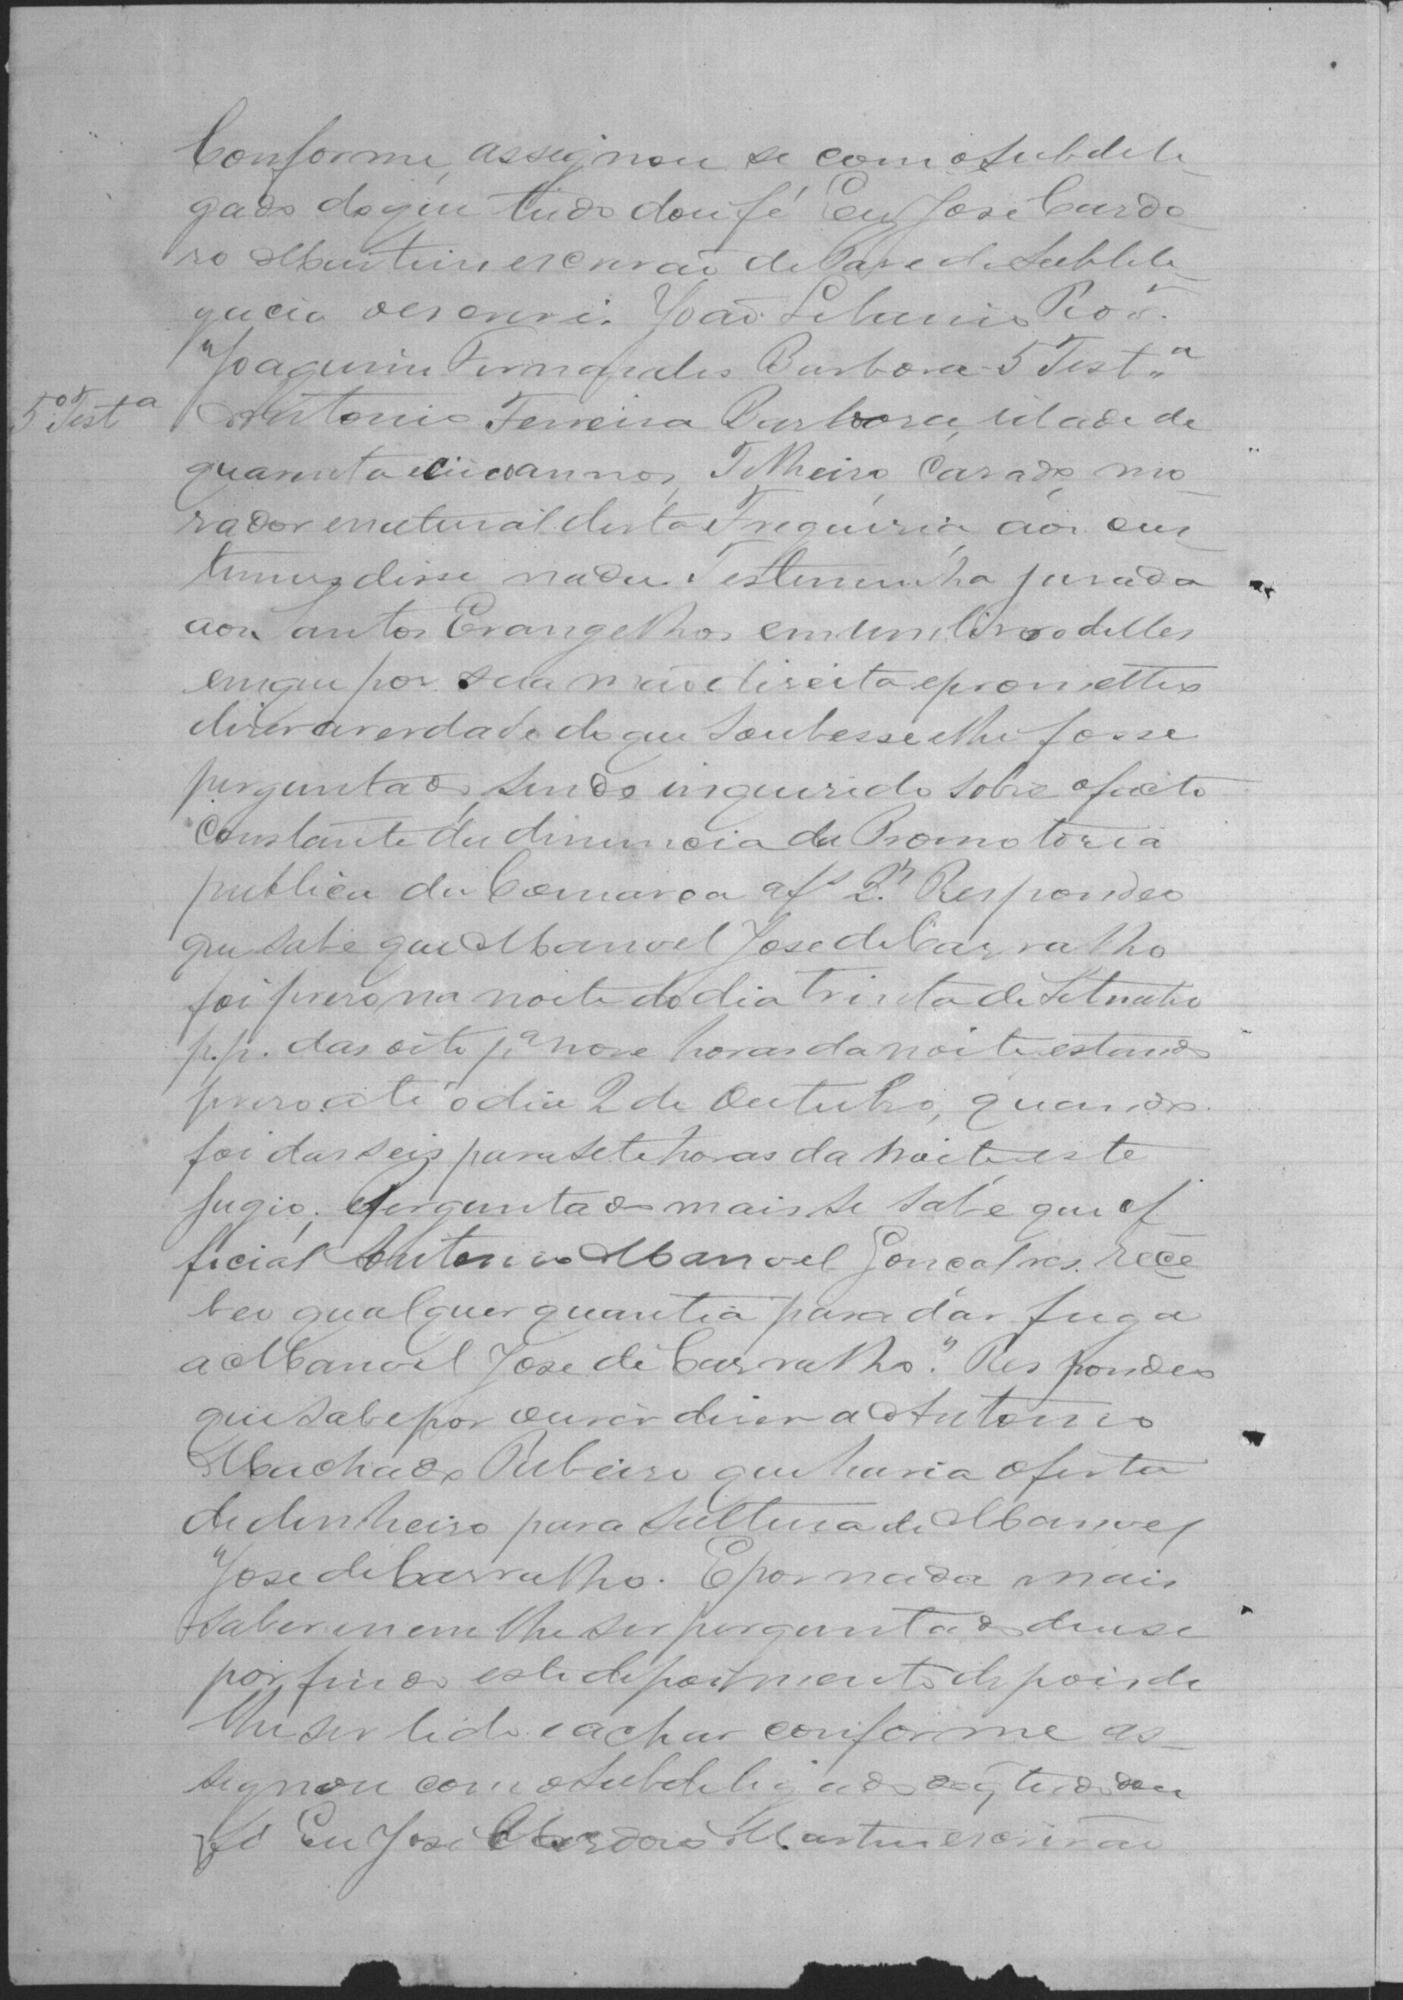 Conforme, assignou se com o Subdele
gado do que tudo dou fé Eu José Cardo
zo Martins escrivão de Paz e de Subdele
gacia o escrevi. João
Joaquim Fernandes Barbosa 5 Test.ª
5ª Testª
Antonio Ferreira Barbosa, idade de
quarenta e cinco annos, Telheiro, Casado, mo
rador e natural desta Freguesia, aos cus
tumes disse nada. Testemunha jurada
aos Santos Evangelhos em um livro delles
em que por sua mão direita e prometteo
dizer a verdade do que soubesse e lhe fosse
perguntado, sendo inquerido sobre o facto
Constante da dinuncia da Promotoria
publica da Comarca a fs 2. Respondeo
que sabe que Manoel Jose de Carvalho
foi preso na noite do dia trinta de Setembro
p.p. das oito pª nove horas da noite estando
preso até o dia 2 de Outubro, quando
foi das seis para sete horas da noite este
fugio. Perguntado mais se sabe que of
ficial Antonio Manoel Gonçalves rece
beo qualquer quantia para dar fuga
a Manoel Jose de Carvalho. Respondeo
que sabe por ouvir dizer a Antonio
Machado Ribeiro que havia oferta
de dinheiro para saltura de Manoel
Jose de Carvalho. E por nada mais
saber e nem lhe ser perguntado deu se
por findo este depoimento depois de
lhe ser lido e achar conforme as
signou com o Subdelegado do q tudo dou
fé Eu José Cardozo Martins escrivão